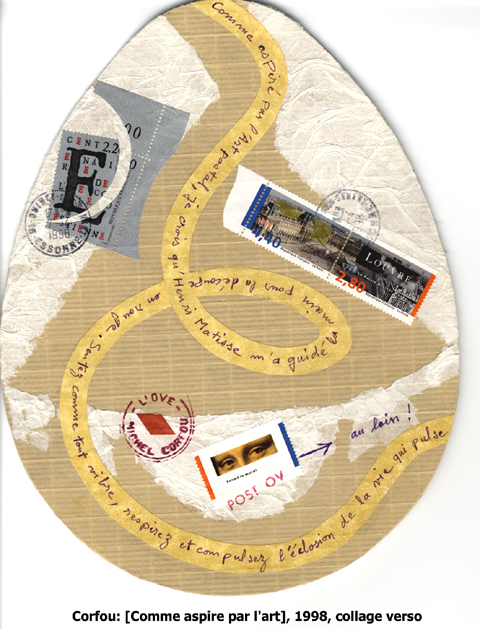 Comme aspiré par l'Art postal, je crois qu'Henri Matisse m'a guidé la main pour la découpe en rouge. Sentez comme tout vibre, respirez et compulsez l'éclosion de la vie qui pulse
2,20
E
ESSONNE
1998
4,40
LOUVRE
2,80
L'OVE
MICHEL CORFOU
POST OV
au loin !
Corfou: [Comme aspire par l'art], 1998, collage verso